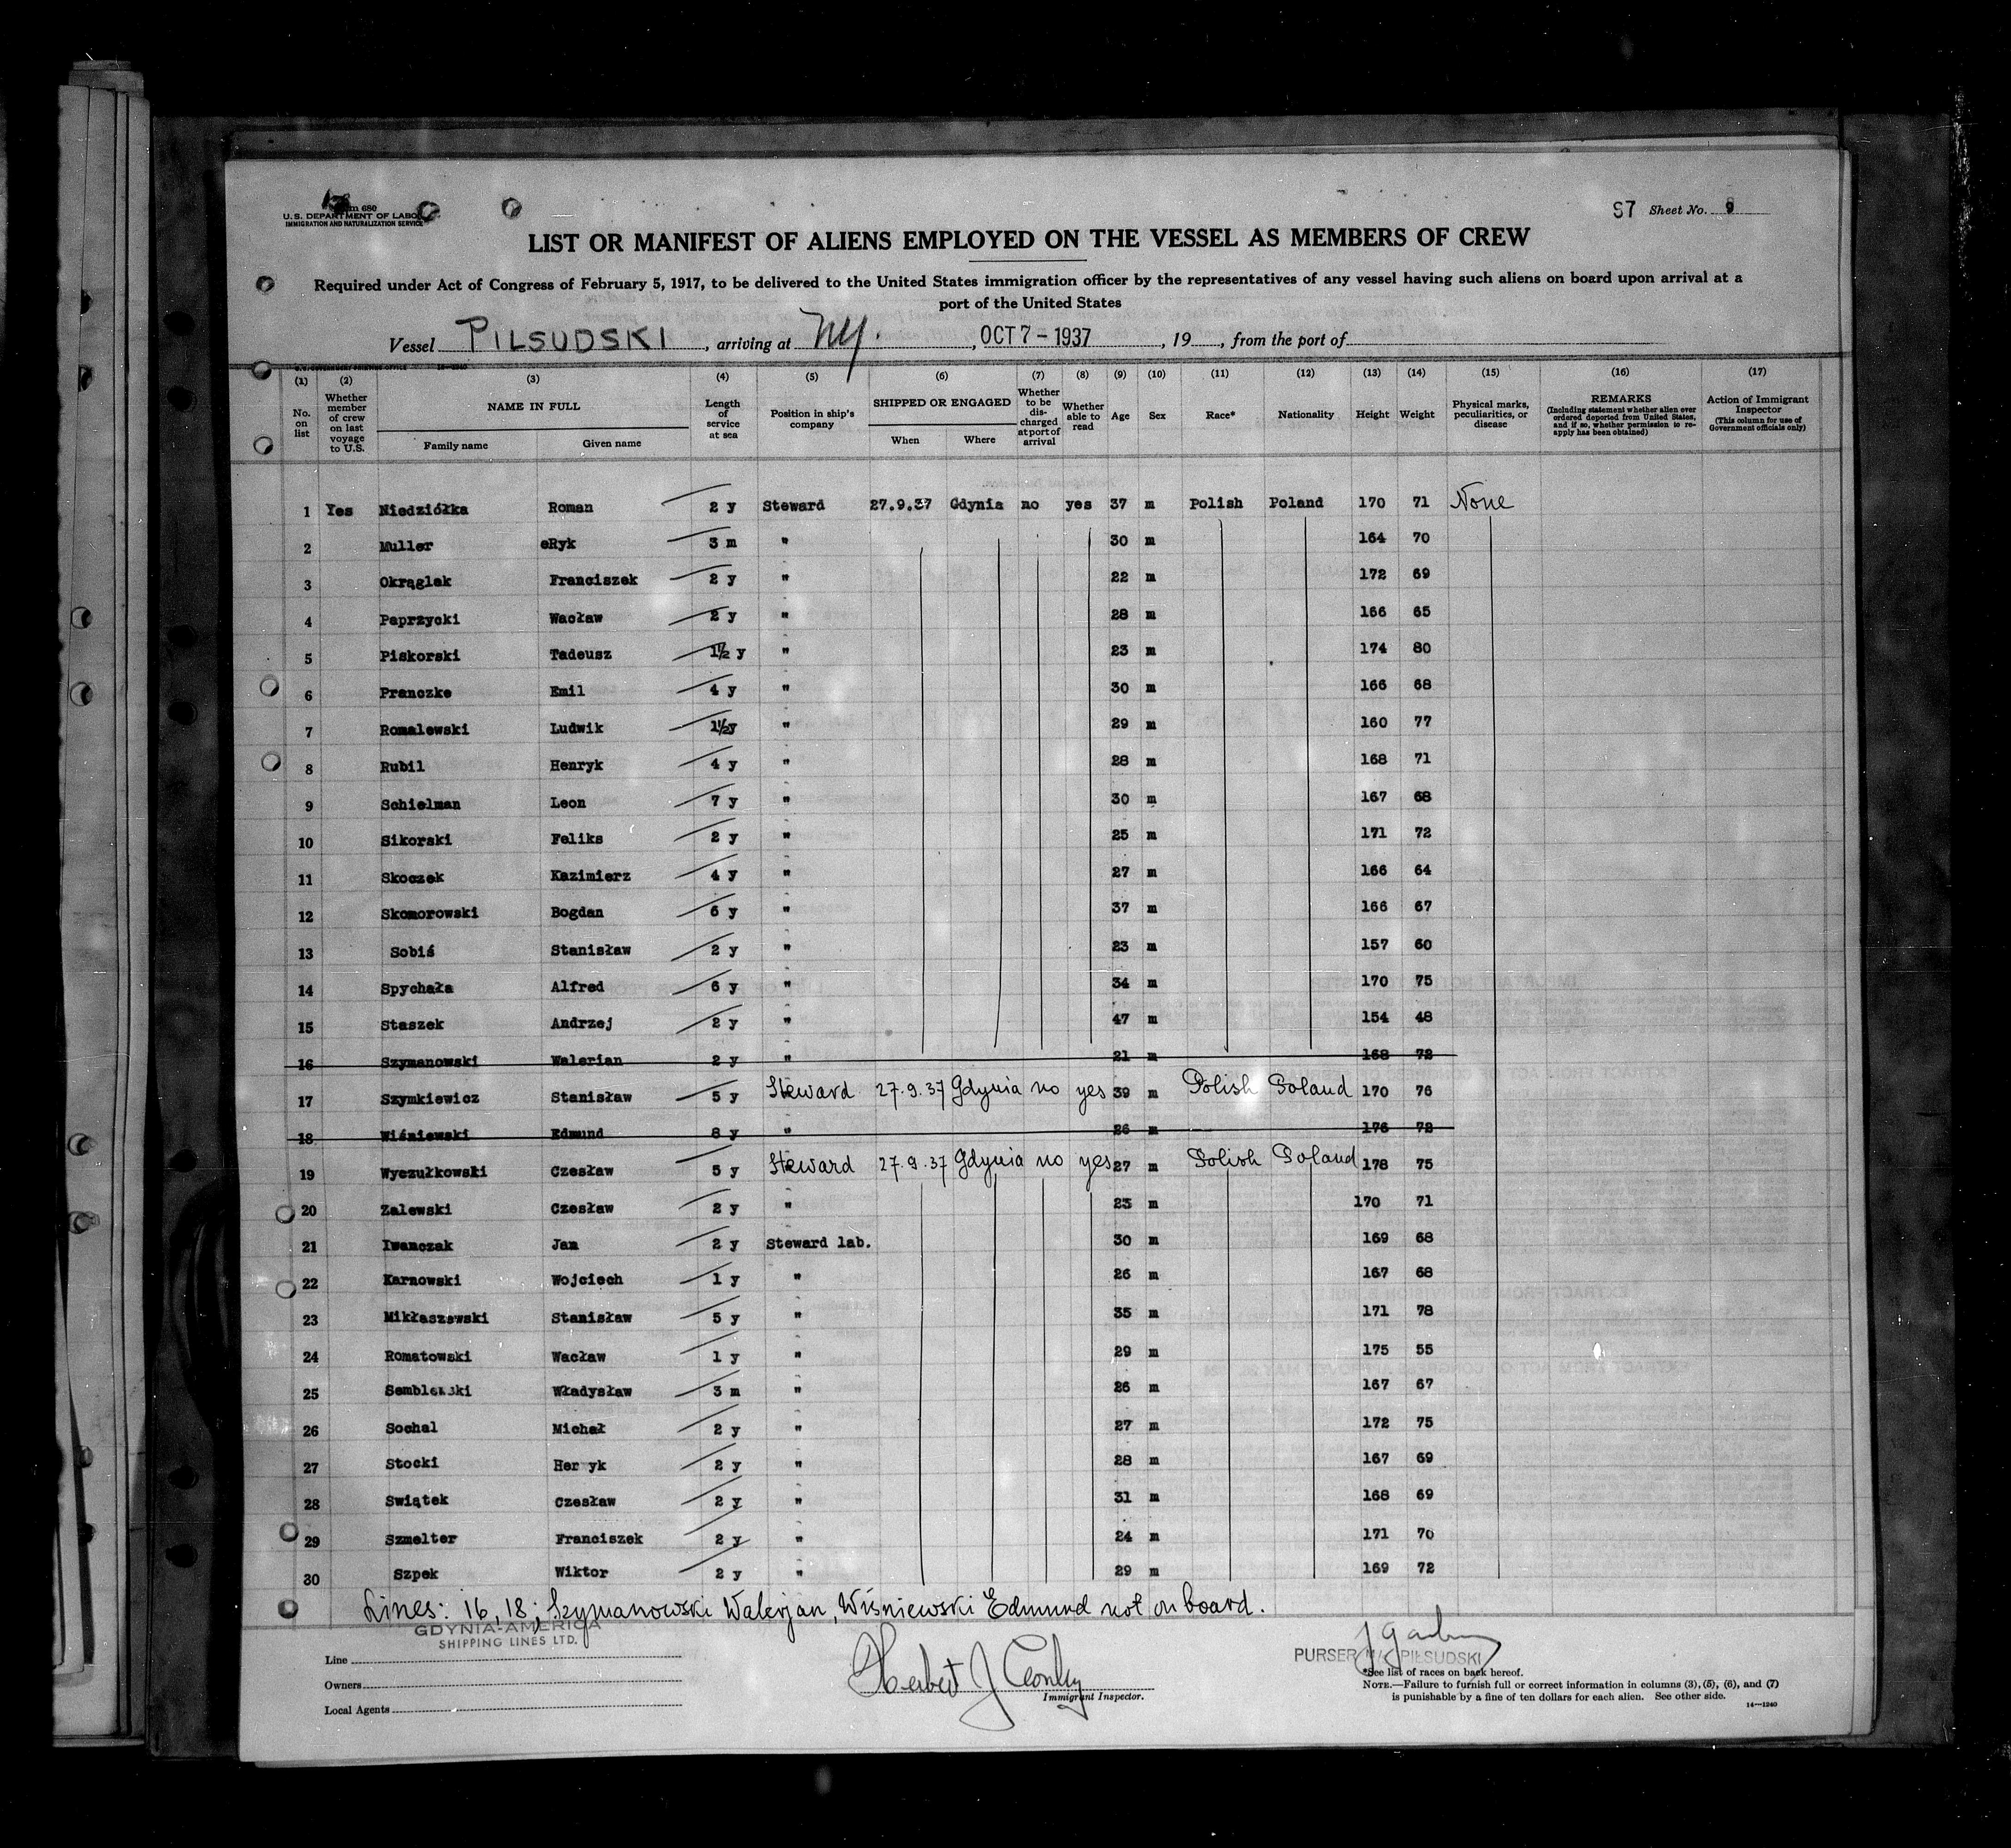 Form 680
U.S. DEPARTMENT OF LABOR
IMMIGRATION AND NATURALIZATION SERVICE
97 Sheet No. 9
LIST OR MANIFEST OF ALIENS EMPLOYED ON THE VESSEL AS MEMBERS OF CREW
Required under Act of Congress of February 5, 1917, to be delivered to the United States immigration officer by the representatives of any vessel having such aliens on board upon arrival at a
port of the United States
Vessel PILSUDSKI, arriving at NY., OCT 7 - 1937, 19, from the port of
(1) (2) (3) (4) (5) (6) (7) (8) (9) (10) (11) (12) (13) (14) (15) (16) (17)
No. on list
Whether member of crew on last voyage to U.S.
NAME IN FULL
Family name Given name
Length of service at sea
Position in ship's company
SHIPPED OR ENGAGED
When Where
Whether to be discharged at port of arrival
Whether able to read
Age
Sex
Race*
Nationality
Height
Weight
Physical marks, peculiarities, or disease
REMARKS
(Including statement whether alien ever ordered deported from United States, and if so, whether permission to reapply has been obtained)
Action of Immigrant Inspector
(This column for use of Government officials only)
1 Yes Niedziółka Roman 2 y Steward 27.9.37 Gdynia no yes 37 m Polish Poland 170 71 None
2 Muller eRyk 3 m " 30 m 164 70
3 Okrąglak Franciszek 2 y " 22 m 172 69
4 Paprzycki Wacław 2 y " 28 m 166 65
5 Piskorski Tadeusz 1½ y " 23 m 174 80
6 Pranczke Emil 4 y " 30 m 166 68
7 Romalewski Ludwik 1½y " 29 m 160 77
8 Rubil Henryk 4 y " 28 m 168 71
9 Schielman Leon 7 y " 30 m 167 68
10 Sikorski Feliks 2 y " 25 m 171 72
11 Skoczek Kazimierz 4 y " 27 m 166 64
12 Skomorowski Bogdan 6 y " 37 m 166 67
13 Sobiś Stanisław 2 y " 23 m 157 60
14 Spychała Alfred 6 y " 34 m 170 75
15 Staszek Andrzej 2 y " 47 m 154 48
16 Szymanowski Walerian 2 y " 21 m 168 72
17 Szymkiewicz Stanisław 5 y Steward 27.9.37 Gdynia no yes 39 m Polish Poland 170 76
18 Wiśniewski Edmund 8 y " 26 m 176 72
19 Wyczułkowski Czesław 5 y Steward 27.9.37 Gdynia no yes 27 m Polish Poland 178 75
20 Zalewski Czesław 2 y " 23 m 170 71
21 Iwanczak Jan 2 y Steward lab. 30 m 169 68
22 Karnowski Wojciech 1 y " 26 m 167 68
23 Mikłaszewski Stanisław 5 y " 35 m 171 78
24 Romatowski Wacław 1 y " 29 m 175 55
25 Władysław 3 m " 26 m 167 67
26 Sochal Michał 2 y " 27 m 172 75
27 Stocki Her yk 2 y " 28 m 167 69
28 Swiątek Czesław 2 y " 31 m 168 69
29 Szmelter Franciszek 2 y " 24 m 171 70
30 Szpek Wiktor 2 y " 29 m 169 72
Lines: 16, 18; Szymanowski Walerjan, Wiśniewski Edmund not on board.
GDYNIA-AMERICA
SHIPPING LINES LTD.
Line
Owners
Local Agents
Herbert J Conley
Immigrant Inspector.
PURSER M/S PIŁSUDSKI
*See list of races on back hereof.
NOTE.—Failure to furnish full or correct information in columns (3), (5), (6), and (7)
is punishable by a fine of ten dollars for each alien. See other side.
14—1240